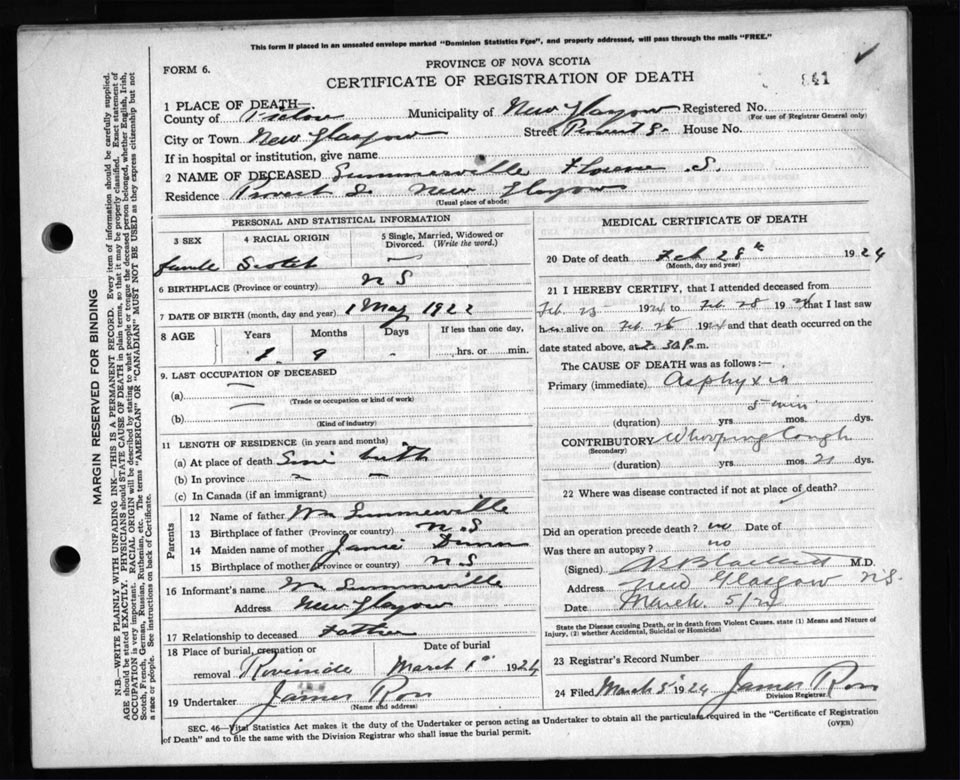 This form if placed in an unsealed envelope marked "Dominion Statistics Free", and properly addressed, will pass through the mails "FREE."
PROVINCE OF NOVA SCOTIA
FORM 6.
CERTIFICATE OF REGISTRATION OF DEATH
1 PLACE OF DEATH—
County of Pictou Municipality of New Glasgow Registered No.
(For use of Registrar General only)
City or Town New Glasgow Street House No.
If in hospital or institution, give name
2 NAME OF DECEASED Summerville Florence S.
Residence Provost St New Glasgow
(Usual place of abode)
PERSONAL AND STATISTICAL INFORMATION
3 SEX 4 RACIAL ORIGIN 5 Single, Married, Widowed or Divorced. (Write the word.)
female Scotch —
6 BIRTHPLACE (Province or country) N S
7 DATE OF BIRTH (month, day and year) 1 May 1922
8 AGE Years Months Days If less than one day,
1 9 - hrs. or min.
9. LAST OCCUPATION OF DECEASED
(a) —
(Trade or occupation or kind of work)
(b) —
(Kind of industry)
11 LENGTH OF RESIDENCE (in years and months)
(a) At place of death Since birth
(b) In province — —
(c) In Canada (if an immigrant)
Parents
12 Name of father Wm Summerville
13 Birthplace of father (Province or country) N.S
14 Maiden name of mother Janie Dunn
15 Birthplace of mother (Province or country) N S
16 Informant's name Wm Summerville
Address New Glasgow
17 Relationship to deceased Father
18 Place of burial, cremation or removal Riverside Date of burial March 1st 1924
19 Undertaker James Ross
(Name and address)
MEDICAL CERTIFICATE OF DEATH
20 Date of death Feb 28th 1924
(Month, day and year)
21 I HEREBY CERTIFY, that I attended deceased from
Feb. 23 1924 to Feb 28 1924 that I last saw
her alive on Feb. 28 1924 and that death occurred on
date stated above, at 2.30 P.m.
The CAUSE OF DEATH was as follows:—
Primary (immediate) Asphyxia
5 min
(duration) yrs. mos. dys.
CONTRIBUTORY Whooping Cough
(Secondary)
(duration) yrs. mos. 21 dys.
22 Where was disease contracted if not at place of death?
Did an operation precede death? no Date of
Was there an autopsy? no
(Signed) M.D.
Address New Glasgow N.S.
Date March 5/24
State the Disease causing Death, or in death from Violent Causes, state (1) Means and Nature of Injury, (2) whether Accidental, Suicidal or Homicidal
23 Registrar's Record Number
24 Filed March 5th 1924 James Ross
Division Registrar
SEC. 46—Vital Statistics Act makes it the duty of the Undertaker or person acting as Undertaker to obtain all the particulars required in the "Certificate of Registration
of Death" and to file the same with the Division Registrar who shall issue the burial permit. (OVER)
MARGIN RESERVED FOR BINDING
N.B.—WRITE PLAINLY WITH UNFADING INK—THIS IS A PERMANENT RECORD. Every item of information should be carefully supplied.
AGE should be stated EXACTLY. PHYSICIANS should STATE CAUSE OF DEATH in plain terms, so that it may be properly classified. Exact statement of
OCCUPATION is very important. RACIAL ORIGIN will be described by stating to what people or tongue the deceased person belonged, whether English, Irish,
Scotch, French, German, Russian, Ruthenian, etc. The terms "AMERICAN" or "CANADIAN" MUST NOT BE USED as they express citizenship but not
a race or people. See instructions on back of Certificate.